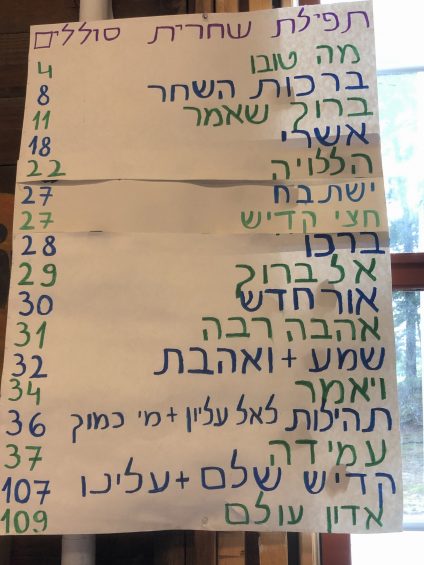 תפילת שחרית סוללים
מה טובו 4
ברכות השחר 8
ברוך שאמר 11
אשרי 18
הללויה 22
ישתבח 27
חצי קדיש 27
ברכו 28
אל ברוך 29
אור חדש 30
אהבה רבה 31
שמע + ואהבת 32
ויאמר 34
תהילות לאל עליון + מי כמוך 36
עמידה 37
קדיש שלם + עלינו 107
אדון עולם 109